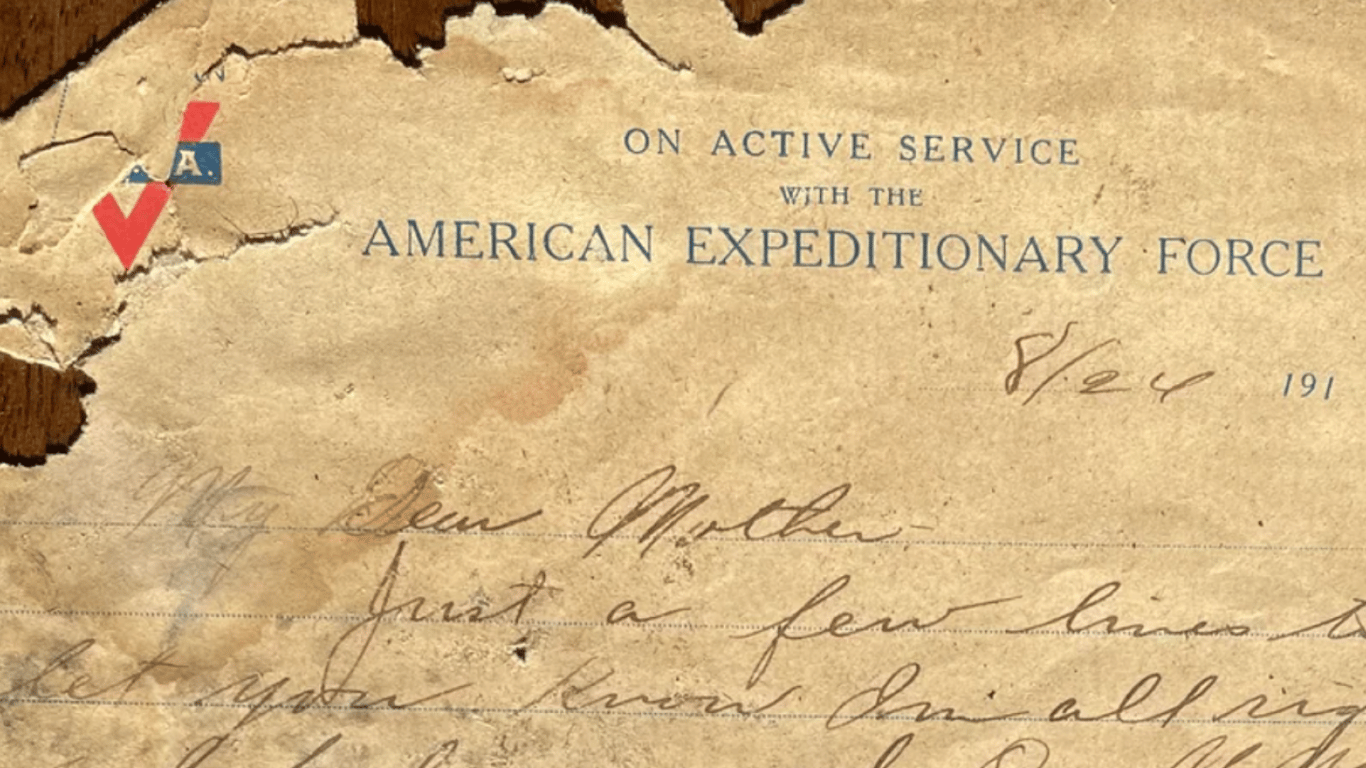 A.
ON ACTIVE SERVICE
WITH THE
AMERICAN EXPEDITIONARY FORCE
8/24 191
My Dear Mother
Just a few lines t
let you know I'm all rig